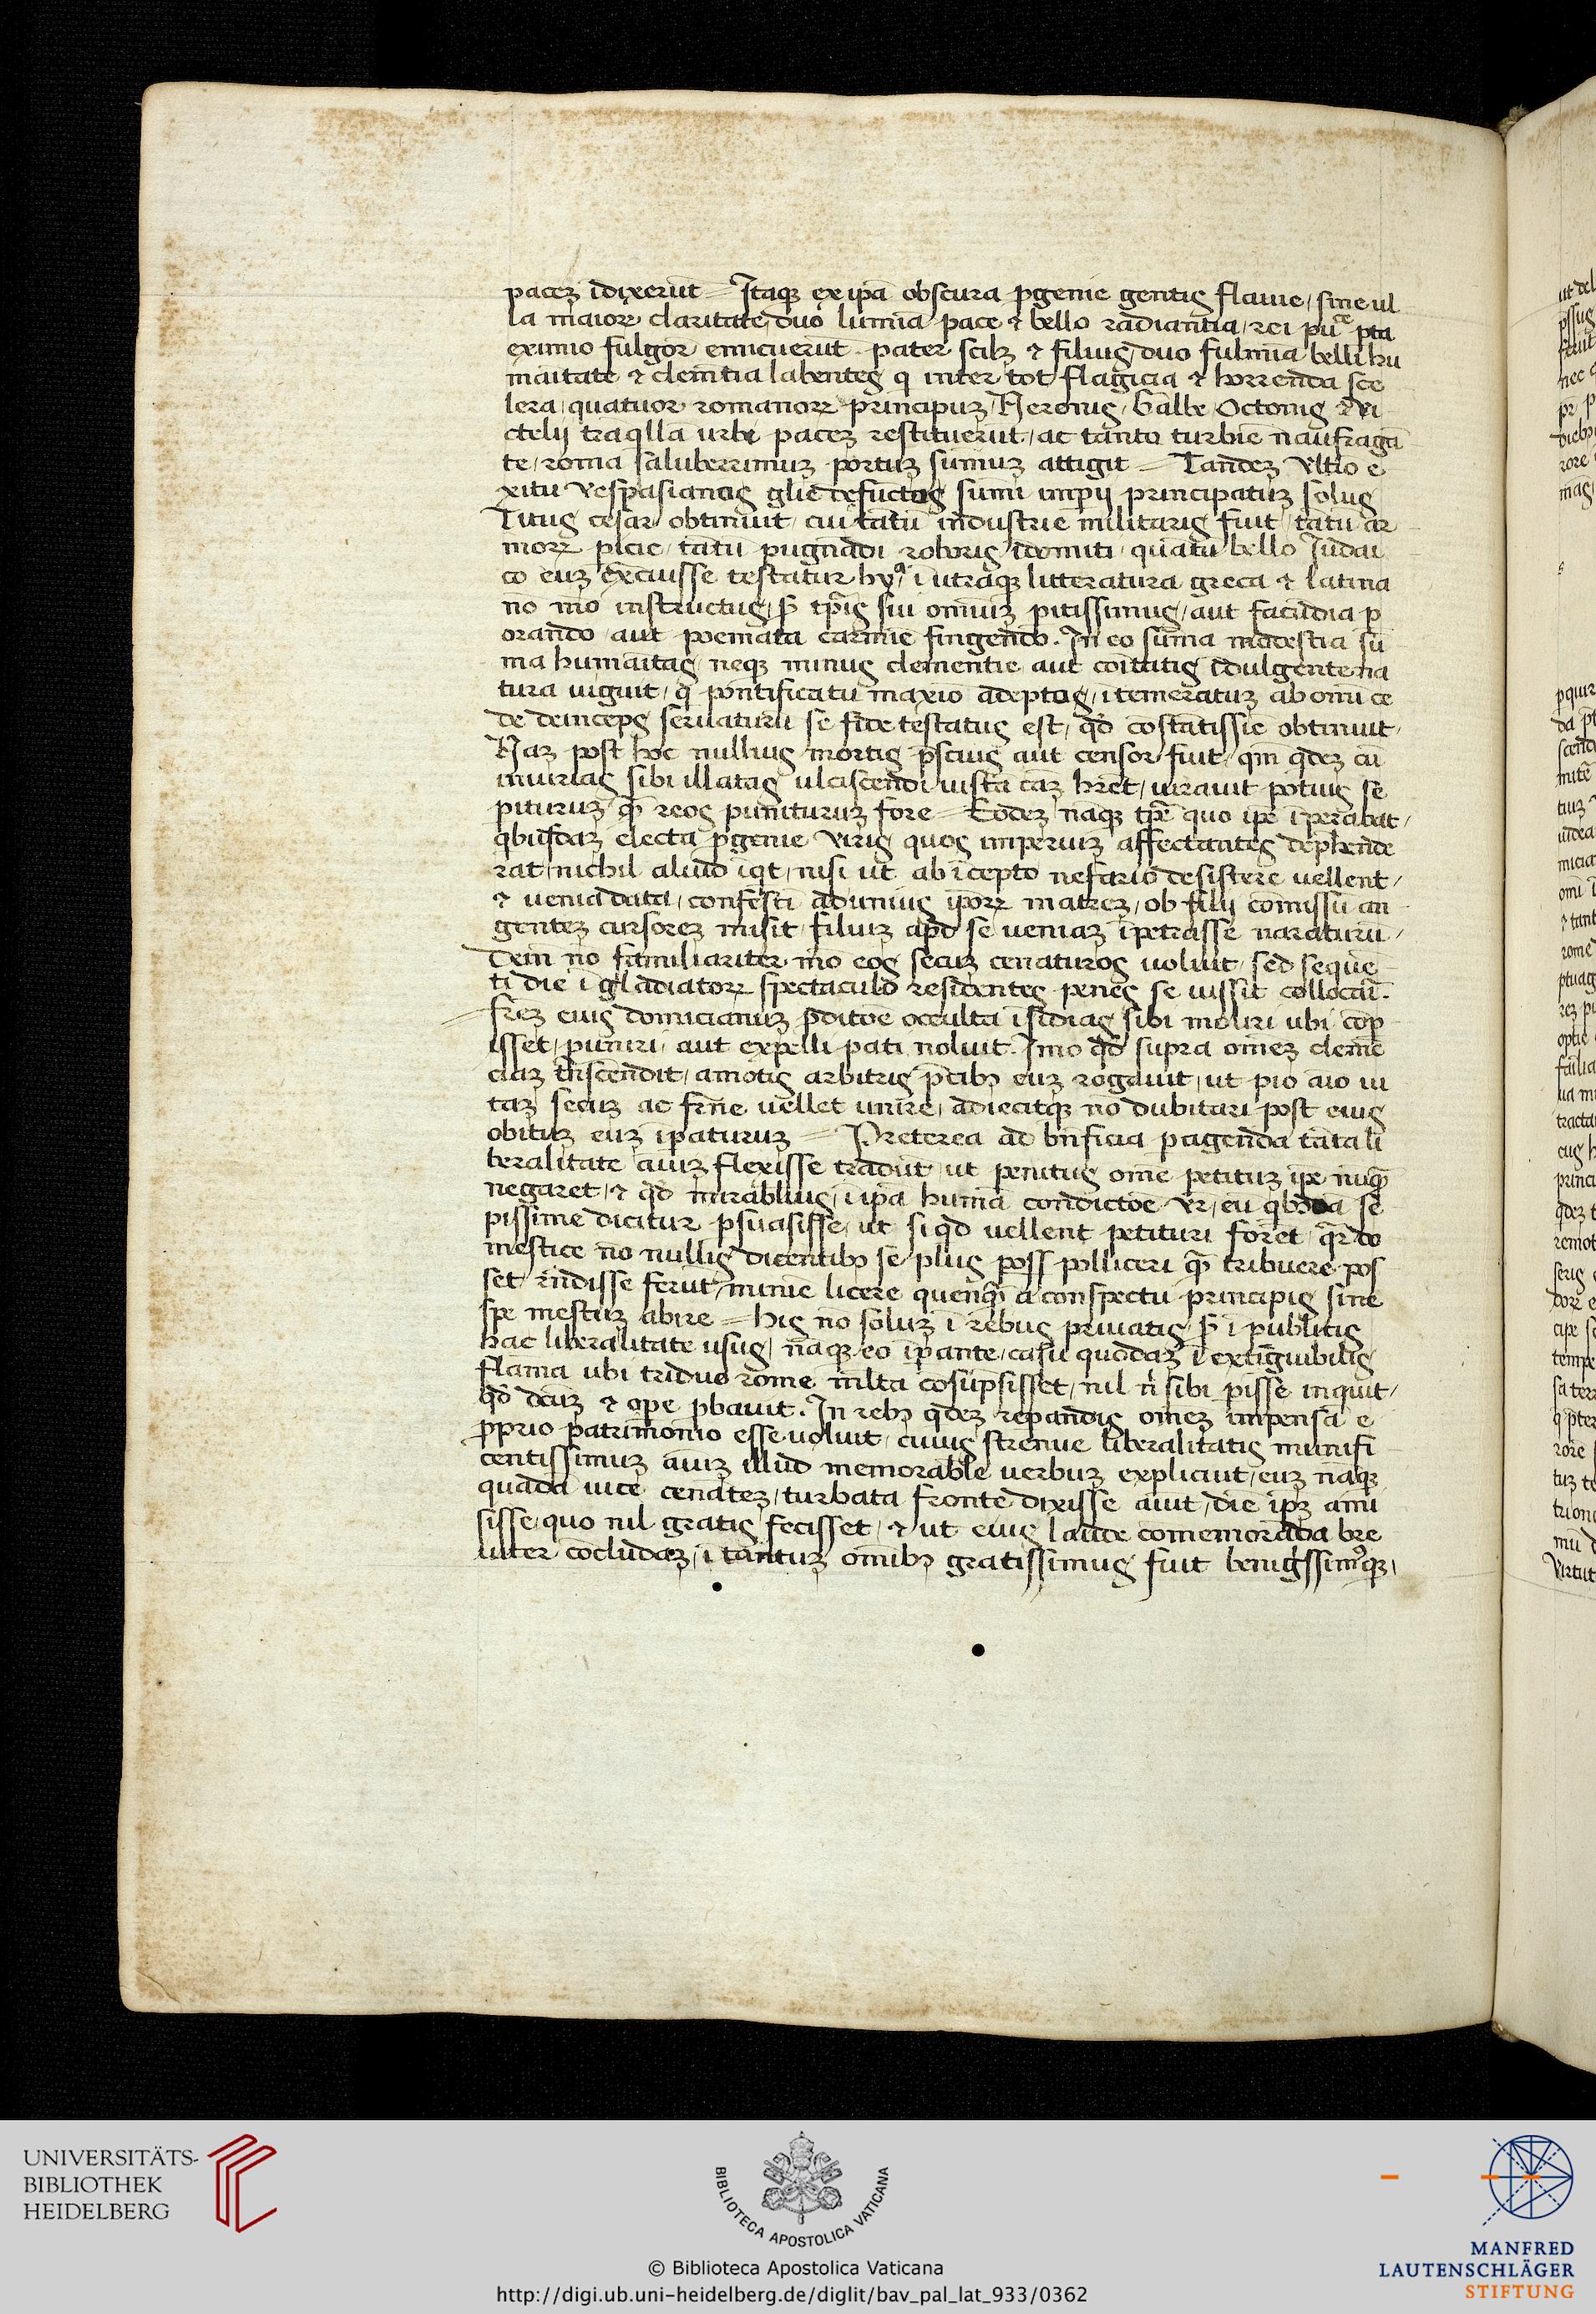 pacez īdixerūt = Itaqz ex ipā obscura pgenie gentis flauie / sine ul
la maiore claritate / duo lumīa pace & bello radiantia / rei puce pta
eximio fulgor emicuerūt . pater scilz & filius / duo fulmīa belli hu
māitate & clemētia labentes q inter tot flagicia & horrenda sce
lera / quatuor romanorꝝ principuz / Neronis / Galbe Octonis & vi
ctelij trāqlla urbi pacez restituerūt / ac tanto turbīe naufragā
te / roma saluberrimuz portuz sumuz attigit = Tandez Vltīo e
xitu vespasianus glīe defuctus sūmi imperij principatuz solus
Titus cesar obtinuit / cui tātū industrie militaris fuit / tātū ar
morꝝ picie / tātū pugnādi roboris īdomiti / quātū bello Iudai
co euz exciuisse testatur hyª / ī utraqz litteratura greca & latina
nō mō instructus / s tpis sui omniuz pitissimus / aut facūdia p
orando aut poemata carmīe fingendo . In eo sūma modestia sū
ma humāitas neqz minus clementie aut coītatis īdulgente na
tura uiguit / q pontificatū maxīo adeptus / ītemeratuz ab omī ce
de deinceps seruaturū se fide testatus est / qd cōstātissīe obtinuit /
Naz post hoc nullius mortis pscius aut censor fuit / qm qdez cū
iniurias sibi illatas ulciscendi iusta cāz hret / iurauit potius se
piturūz qm reos puniturūz fore = Eodez naqz tpe quo ipe īperabat /
qbusdaz electa pgenie viris quos imperiuz affectantes deprehende
rat / nichil aliud īqt / nisi ut ab īcepto nefario desistere uellent /
& uenia data / confestī ad unius ipor matrez / ob filij comissū an
gentez cursorez misit filiuz apd se ueniaz īpetrasse naraturū /
Dein nō familiariter mō eos secuz cenaturos uoluit / sed sequē
ti die ī gladiatorꝝ spectaculo residentes penes se iussit collocarī .
frez eius domicianuz pditōe occulta īsidias sibi moliri ubi cop
isset / puniri / aut expelli pati noluit . Imo qd supra omez clemē
ciaz trāscendit / amotis arbitris pcibz euz rogauit / ut pio aīo ui
taz secuz ac frne uellet unire / adiecitqz nō dubitari post eius
obituz euz īpaturuz = Preterea ad bnficia pagenda tāta li
beralitate aīuz flexisse tradūt ut penitus ome petituz ipe nūqz
negaret / & qd mirablius / ī ipa humā condictōe ūr / eu qbzda se
pissime dicitur psuasisse / ut si qd uellent petituri foret / qr do
mestice nō nullis dicentibz se plus poss polliceri qm tribuere pos
set / rndisse ferūt / mimie licere quenqm a conspectu principis sine
spe mestuz abire = his nō soluz ī rebus priuatis s ī publicis
hac liberalitate usus / naqz eo ipante / casu quodaz ī extiguibilis
flama ubi triduo rome mlta cōsūpsisset / nil n sibi pisse inquit /
qd deuz & ope pbauit . In rebz qdez repandis omez impensā e
pprio patrimonio esse uoluit / cuius strenue liberalitatis munifi
centissimuz aīuz illud memorable uerbuz explicuit / euz naqz
quadā uice cenātez / turbata fronte dixisse aiut / die ipz ami
sisse / quo nil gratis fecisset / & ut eius laude comemorāda bre
uiter cōcludaz / ī tantuz omībz gratissimus fuit benigssimusqz /
UNIVERSITÄTS-
BIBLIOTHEK
HEIDELBERG
BIBLIOTECA APOSTOLICA VATICANA
© Biblioteca Apostolica Vaticana
http://digi.ub.uni-heidelberg.de/diglit/bav_pal_lat_933/0362
MANFRED
LAUTENSCHLÄGER
STIFTUNG